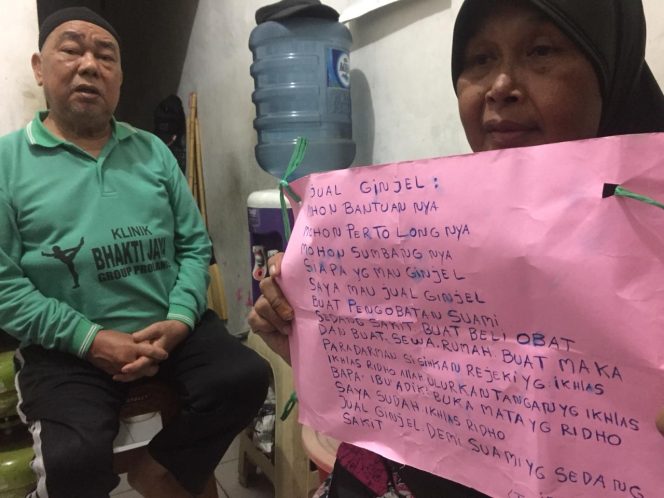 KLINIK
BHAKTI JAYA
GROUP
JUAL GINJEL:
MOHON BANTUAN NYA
MOHON PERTOLONG NYA
MOHON SUMBANG NYA
SIAPA YG MAU GINJEL
SAYA MAU JUAL GINJEL
BUAT PENGOBATAN SUAMI
SEDANG SAKIT. BUAT BELI OBAT
DAN BUAT. SEWA. RUMAH. BUAT MAKA
PARADARMAN SISIHKAN REJEKI YG IKHLAS
IKHLAS RIDHO ALLAH ULURKAN TANGAN YG IKHLAS
BAPA. IBU ADIK. BUKA MATA YG RIDHO
SAYA SUDAH IKHLAS RIDHO
JUAL GINJEL. DEMI SUAMI YG SEDANG
SAKIT